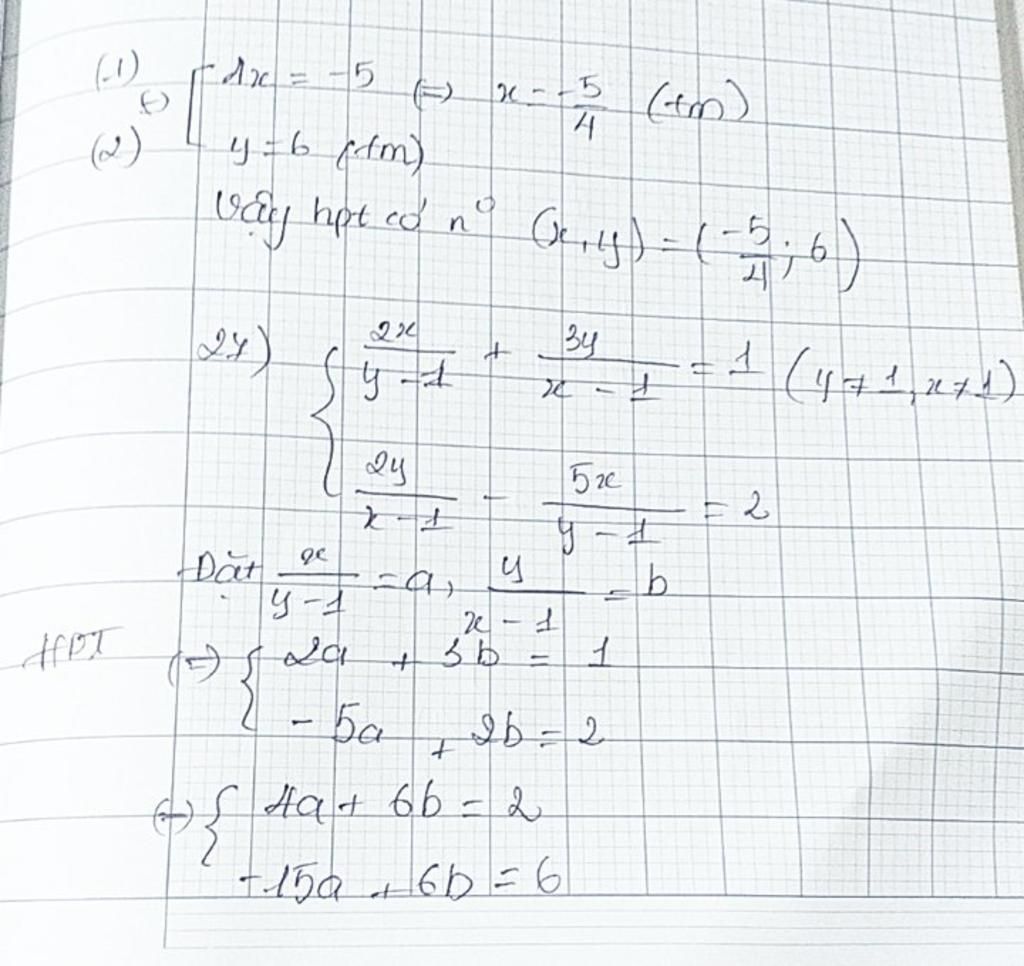 (1) 4x = -5 (=) x = -5/4 (tm)
(=)
(2) y = 6 (tm)
Vậy hpt có n⁰ (x, y) = (-5/4; 6)
27) { 2x/(y-1) + 3y/(x-1) = 1 (y ≠ 1, x ≠ 1)
2y/(x-1) - 5x/(y-1) = 2
Đặt x/(y-1) = a, y/(x-1) = b
HPT (=) { 2a + 3b = 1
-5a + 2b = 2
(=) { 4a + 6b = 2
-15a + 6b = 6